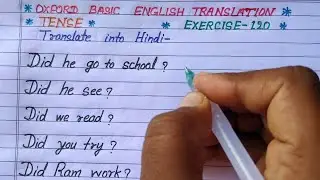 * OXFORD BASIC ENGLISH TRANSLATION *
* TENSE * * EXERCISE-120
Translate into Hindi-
Did he go to school?
Did he see?
Did we read?
Did you try?
Did Ram work?